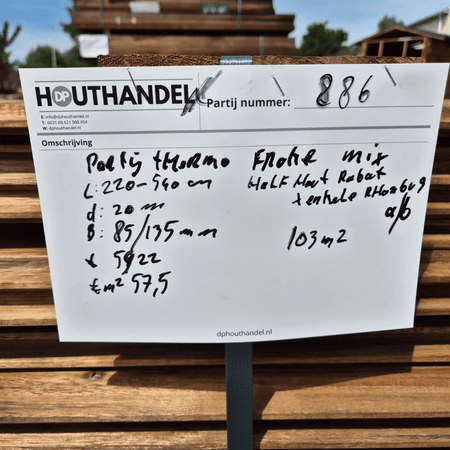 HOUTHANDEL
DP
E: info@dphouthandel.nl
T: 0031 (0) 621 500 454
W: dphouthandel.nl
Partij nummer: 886
Omschrijving
Partij thermo
L: 220-540 cm
d: 20 m
B: 85/135 mm
€ 5922
€m² 57,5
mix
Half Hout Rabat
a/b
103 m2
dphouthandel.nl